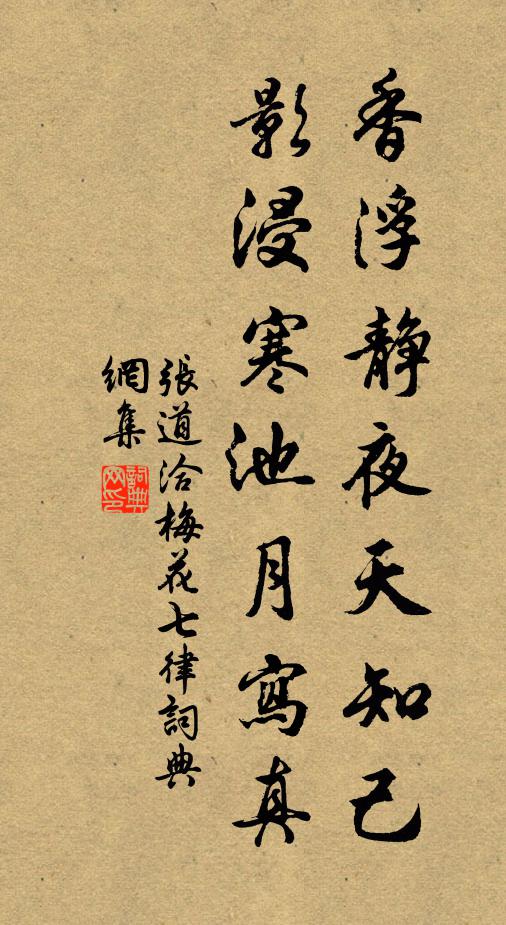 香浮静夜天知己
影浸寒池月寫真
張道洽梅花七律詞典
網集
詞典
网印